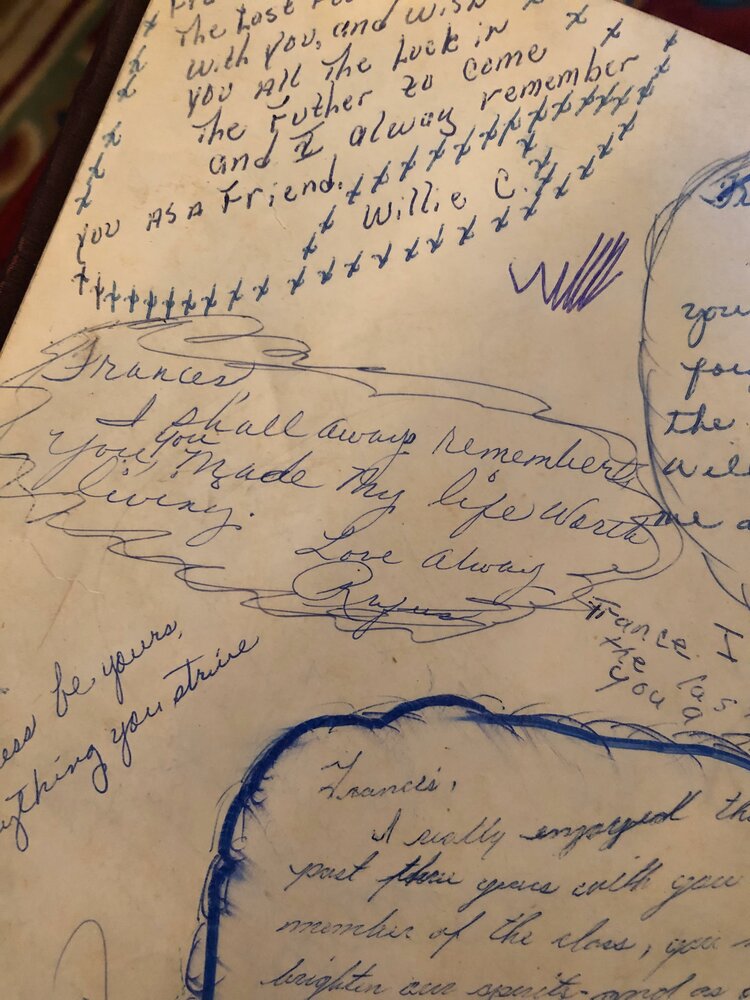 The Last
with you, and wish
you All The Luck in
The Futher to come
and I always remember
you AS A Friend.
Willie C.
Frances,
I shall away remember
you you Made My life Worth
living.
Love Alway
Rufus
you
the
me
France I
the las
you a
ess be yours,
ything you strive
Frances,
I really enjoyed th
past three years with you
member of the class, you
brighten our spirits and as